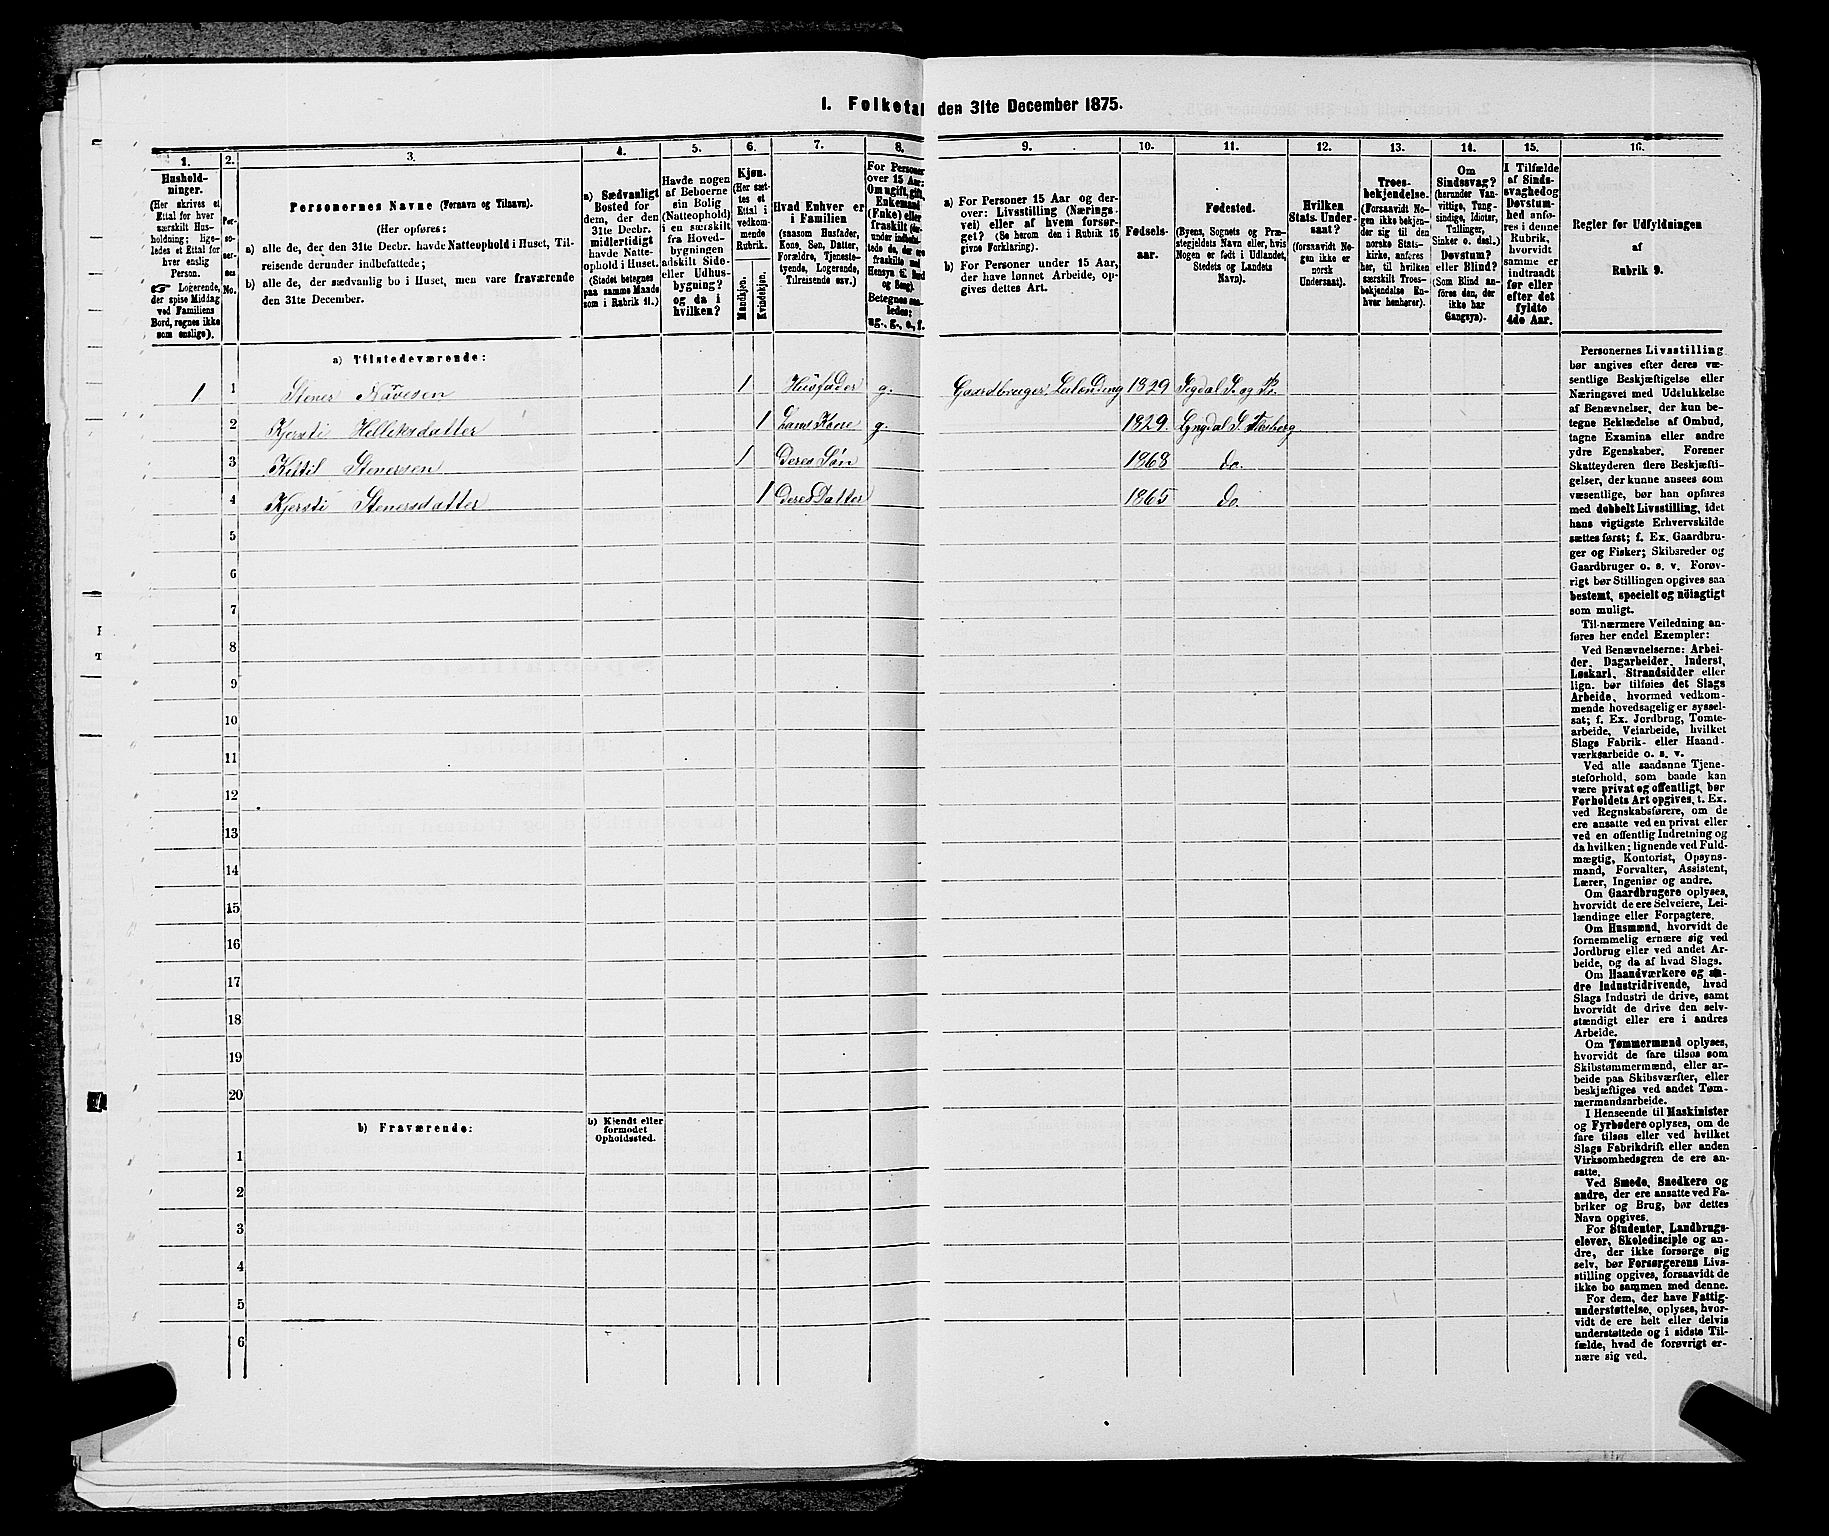 1. Folketal den 31te December 1875.
1.
2.
3.
4.
5.
6.
7.
8.
9.
10.
11.
12.
13.
14.
15.
16.
Hushold-
ninger.
(Her skrives et
Ettal for hver
særskilt Hus-
holdning; lige-
ledes et Ettal for
hver enslig
Person.
☞ Logerende,
der spise Middag
ved Familiens
Bord, regnes ikke
som enslige).
Per-
so-
ner-
nes
No.
Personernes Navne (Fornavn og Tilnavn).
(Her opføres:
a) alle de, der den 31te Decbr. havde Natteophold i Huset, Til-
reisende derunder indbefattede;
b) alle de, der sædvanlig bo i Huset, men vare fraværende
den 31te December.
a) Sædvanligt
Bosted for
dem, der den
31te Decbr.
midlertidigt
havde Natte-
ophold i Huset.
(Stedet betegnes
paa samme Maade
som i Rubrik 11.)
Havde nogen
af Beboerne
sin Bolig
(Natteophold)
i en særskilt
fra Hoved-
bygningen
adskilt Side-
eller Udhus-
bygning?
og da i
hvilken?
Kjøn.
(Her sæt-
tes et
Ettal i
vedkom-
mende
Rubrik.
Mandkjøn.
Kvindekjøn.
Hvad Enhver er
i Familien
(saasom Husfader,
Kone, Søn, Datter,
Forældre, Tjeneste-
tyende, Logerende,
Tilreisende osv.)
For Personer
over 15 Aar:
Om ugift, gift,
Enkemand
(Enke) eller
fraskilt
Betegnes saa-
ledes:
ug., g., e., f.
a) For Personer 15 Aar og der-
over: Livsstilling (Nærings-
vei) eller af hvem forsør-
get? (Se herom den i Rubrik 16
givne Forklaring).
b) For Personer under 15 Aar,
der have lønnet Arbeide, op-
gives dettes Art.
Fødsels-
aar.
Fødested.
(Byens, Sognets og Præ-
stegjeldets Navn eller, hvis
Nogen er født i Udlandet,
Stedets og Landets
Navn).
Hvilken
Stats Under-
saat?
(forsaavidt No-
gen ikke er
norsk
Undersaat).
Troes-
bekjendelse.
(Forsaavidt No-
gen ikke bekjen-
der sig til den
norske Stats-
kirke, anføres
her, til hvilken
særskilt Troes-
bekjendelse En-
hver henhører).
Om
Sindssvag?
(herunder Van-
vittige, Tung-
sindige, Idioter,
Tullinger,
Sinker o. desl.)
Døvstum?
eller Blind?
(Som Blind an-
føres den, der
ikke har
Gangsyn).
I Tilfælde
af Sinds-
svaghed og
Døvstum-
hed anfø-
res i denne
Rubrik,
hvorvidt
samme er
indtraadt
før eller
efter det
fyldte
4de Aar.
Regler for Udfyldningen
af
Rubrik 9.
a) Tilstedeværende:
1 1 Stener 1 Husfader g. Gaardbruger, Leilænding 1829 Sigdal S. og Pr.
2 Kjersti Helliksdatter 1 hans Kone g. 1829. Lyngdal S. Flesberg
3 Kittil Stenersen 1 Deres Søn 1868 do.
4 Kjersti Stenersdatter 1 Deres Datter 1865 do.
5
6
7
8
9
10
11
12
13
14
15
16
17
18
19
20
b) Fraværende:
b) Kjendt eller
formodet
Opholdssted.
1
2
3
4
5
6
Personernes Livsstilling
bør angives efter deres væ-
sentlige Beskjæftigelse eller
Næringsvei med Udelukkelse
af Benævnelser, der kun be-
tegne Beklædelse af Ombud,
tagne Examina eller andre
ydre Egenskaber. Forener
Skatteyderen flere Beskjæfti-
gelser, der kunne ansees som
væsentlige, bør han opføres
med dobbelt Livsstilling, idet
hans vigtigste Erhvervskilde
sættes først; f. Ex. Gaardbru-
ger og Fisker; Skibsreder og
Gaardbruger o. s. v. Forøv-
rigt bør Stillingen opgives saa
bestemt, specielt og nöiagtigt
som muligt.
Til nærmere Veiledning an-
føres her endel Exempler:
Ved Benævnelserne: Arbei-
der, Dagarbeider, Inderst,
Løskarl, Strandsidder eller
lign. bør tilføies det Slags
Arbeide, hvormed vedkom-
mende hovedsagelig er syssel-
sat; f. Ex. Jordbrug, Tomte-
arbeide, Veiarbeide, hvilket
Slags Fabrik- eller Haand-
værksarbeide o. s. v.
Ved alle saadanne Tjene-
steforhold, som baade kan
være privat og offentligt, bør
Forholdets Art opgives, t. Ex.
ved Regnskabsførere, om de
ere ansatte ved en privat eller
ved en offentlig Indretning og
da hvilken; lignende ved Fuld-
mægtig, Kontorist, Opsyns-
mand, Forvalter, Assistent,
Lærer, Ingeniør og andre.
Om Gaardbrugere oplyses,
hvorvidt de ere Selveiere, Lei-
lændinge eller Forpagtere.
Om Husmænd, hvorvidt de
fornemmelig ernære sig ved
Jordbrug eller ved andet Ar-
beide, og da af hvad Slags.
Om Haandværkere og an-
dre Industridrivende, hvad
Slags Industri de drive, samt
hvorvidt de drive den selv-
stændigt eller ere i andres
Arbeide.
Om Tømmermænd oplyses,
hvorvidt de fare tilsøs som
Skibstømmermænd, eller ar-
beide paa Skibsværfter, eller
beskjæftiges ved andet Tøm-
mermandsarbeide.
I Henseende til Maskinister
og Fyrbødere oplyses, om de
fare tilsøs eller ved hvilket
Slags Fabrikdrift eller anden
Virksomhedsgren de ere an-
satte.
Ved Smede, Snedkere og
andre, der ere ansatte ved Fa-
briker og Brug, bør dettes
Navn opgives.
For Studenter, Landbrugs-
elever, Skoledisciple og an-
dre, der ikke forsørge sig
selv, bør Forsørgerens Livs-
stilling opgives, forsaavidt de
ikke bo sammen med denne.
For dem, der have Fattig-
understøttelse, oplyses, hvor-
vidt de ere helt eller delvis
understøttede og i sidste Til-
fælde, hvad de forøvrigt er-
nære sig ved.